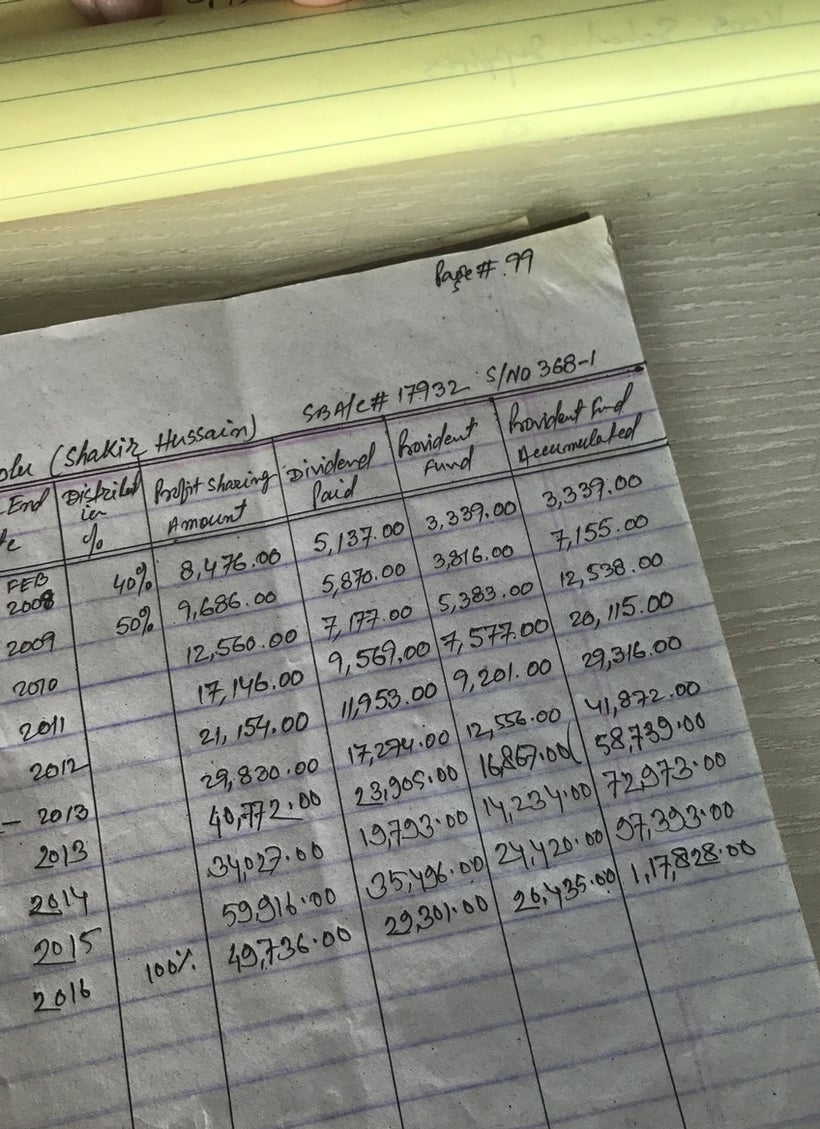 Page #. 99
(Shakir Hussain) SB A/C # 17932 S/NO 368-1
End Distribut in % Profit Sharing Amount Dividend Paid Provident Fund Provident Fund Accumulated
FEB
2008 40% 8,476.00 5,137.00 3,339.00 3,339.00
2009 50% 9,686.00 5,870.00 3,816.00 7,155.00
2010 12,560.00 7,177.00 5,383.00 12,538.00
2011 17,146.00 9,569.00 7,577.00 20,115.00
2012 21,154.00 11,953.00 9,201.00 29,316.00
- 2013 29,830.00 17,274.00 12,556.00 41,872.00
2013 40,772.00 23,905.00 16,867.00 58,739.00
2014 34,027.00 19,793.00 14,234.00 72,973.00
2015 59,916.00 35,496.00 24,420.00 97,393.00
2016 100% 49,736.00 29,301.00 20,435.00 1,17,828.00